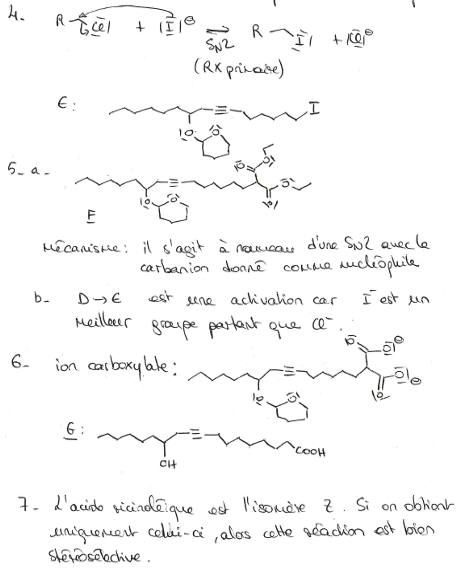 4. R⌒Cl + I⊖ ⇌ R⌒I + Cl⊖
SN2
(RX primaire)
E: I
O O
5- a-
O O
O O
O O
F
Mécanisme: il s'agit à nouveau d'une SN2 avec le
carbanion donné comme nucléophile
b- D → E est une activation car I⁻ est un
meilleur groupe partant que Cl⁻.
6- ion carboxylate: O O⊖
O⊖
O O O
G: COOH
OH
7- L'acide ricinoléique est l'isomère Z. Si on obtient
uniquement celui-ci, alors cette réaction est bien
stéréosélective.